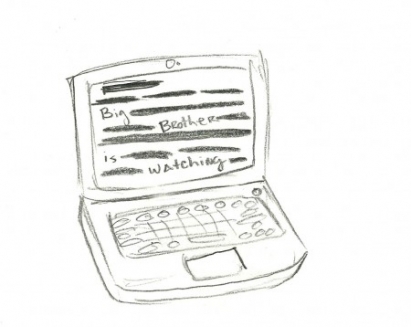 Big
Brother
is
watching